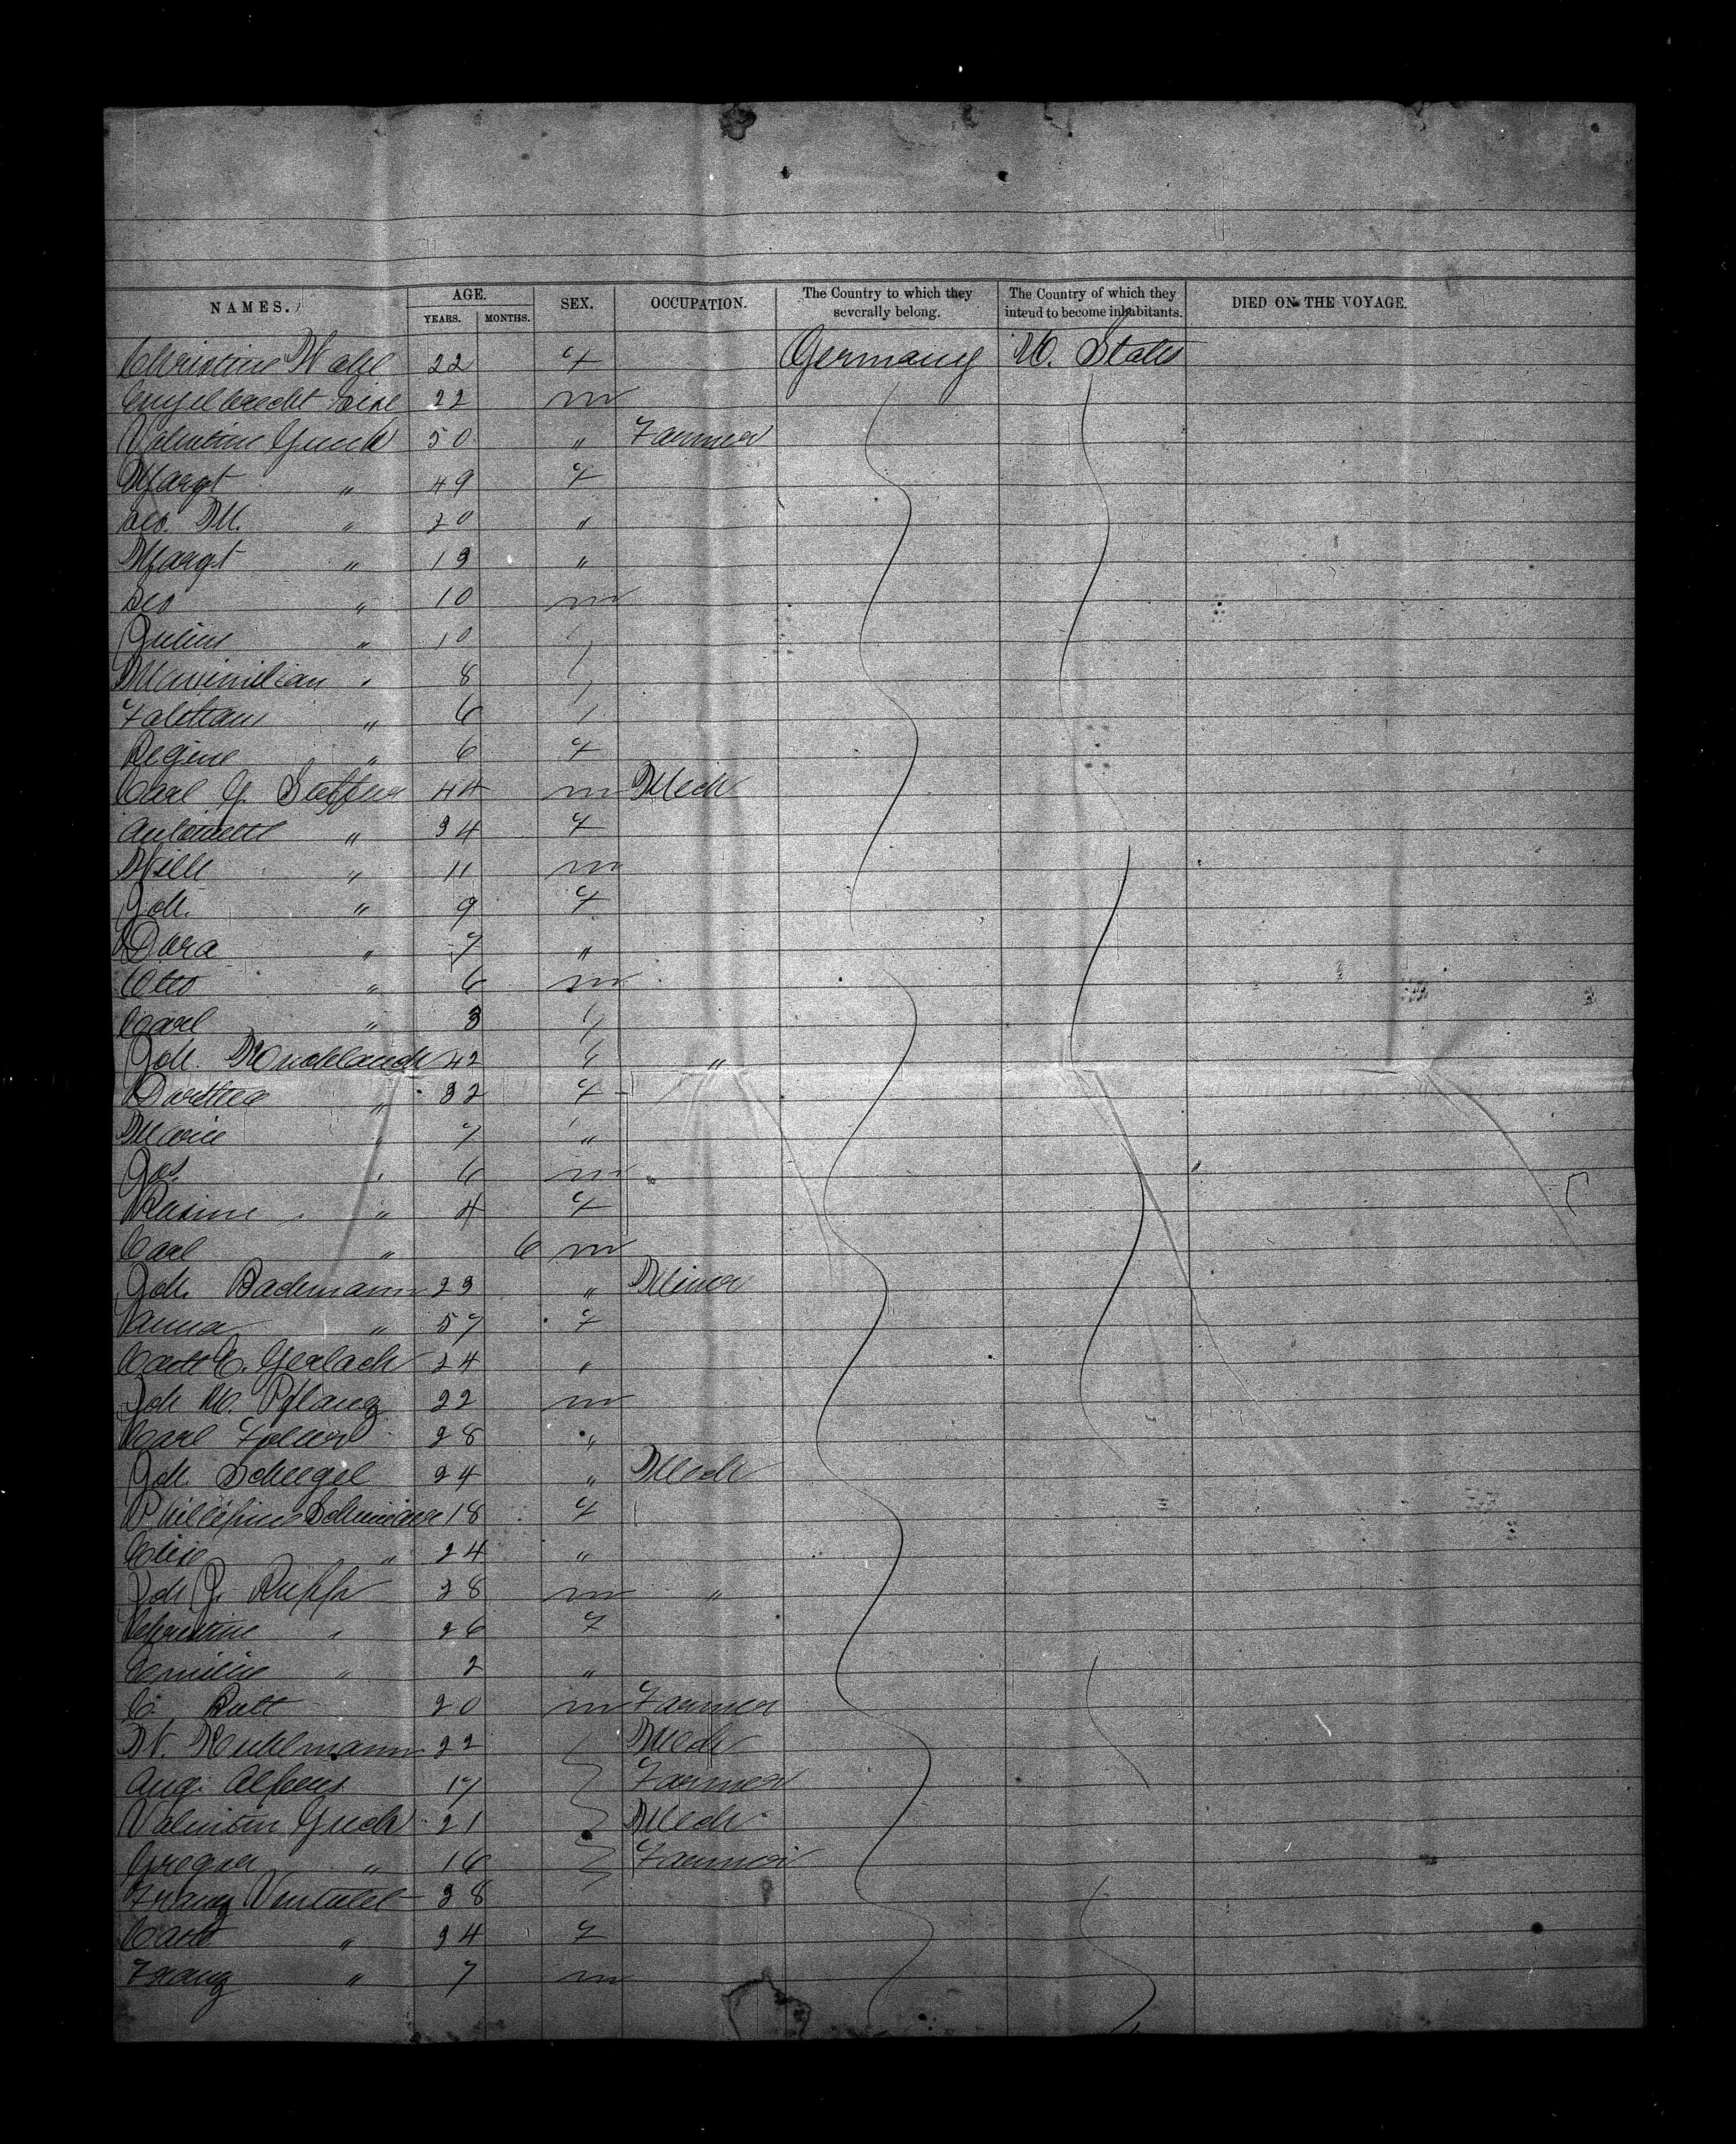 NAMES. AGE. SEX. OCCUPATION. The Country to which they severally belong. The Country of which they intend to become inhabitants. DIED ON THE VOYAGE.
YEARS. MONTHS.
Christine 22 f Germany U. States
Engelbrecht 22 m
Valentine 50 " Farmer
Margt " 49 f
Geo. M. " 20 "
Margt " 19 "
Geo " 10 m
Julius " 10
Maximilian " 8
" 6
Regine " 6 f
Carl G. Steffen 44 m Mech
Antoinette " 34 f
Wilh " 11 m
Joh. " 9 f
Dora " 7 "
Otto " 6 m
Carl " 3
Joh. 42 "
Dorthea " 32 f
Marie " 7 "
Jos. " 6 m
Rosine " 4 f
Carl " 6 m
Joh. Bachmann 23 " Miner
Anna " 57 f
Cath E. Gerlach 24 "
Joh W. Pflanz 22 m
Carl 28 "
Joh. Schlegel 24 " Mech
Phillipine 18 f
Elise " 24 "
Joh J. Rupp 28 m "
Christine " 26 f
Emilie " 2 "
C. Bott 20 m Farmer
W. Kuhlmann 22 Mech
Aug. Alfens 17 Farmer
Valentin 21 Mech
Gregor " 16 Farmer
Franz 38
Cath " 34 f
Franz " 7 m